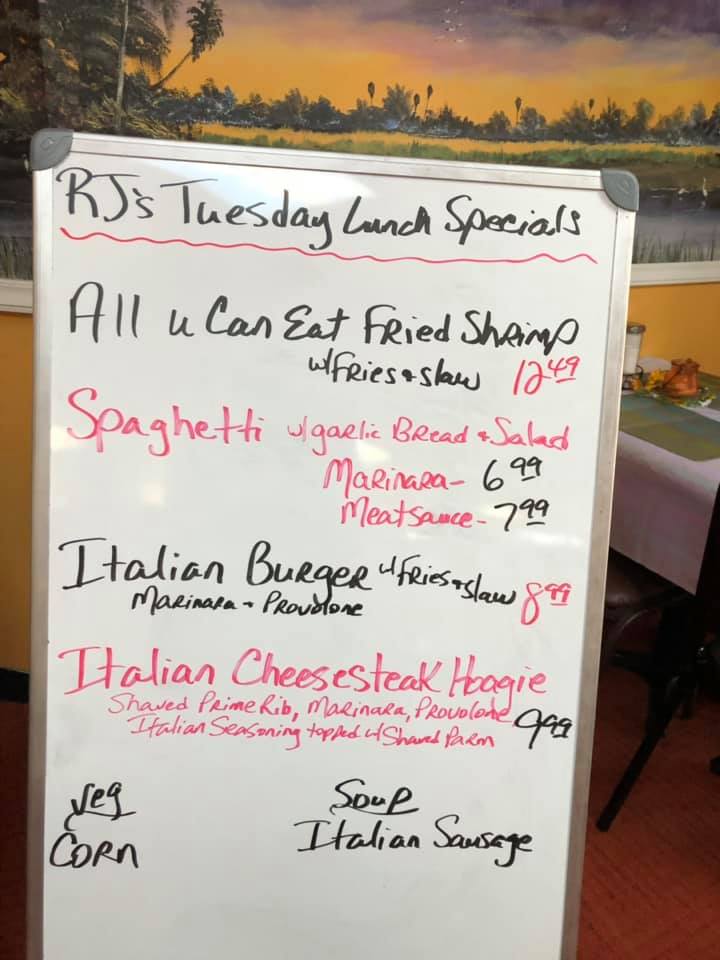 RJ's Tuesday Lunch Specials
All u Can Eat Fried Shrimp
w/Fries + Slaw 12.49
Spaghetti w/garlic Bread + Salad
Marinara- 6.99
Meatsauce- 7.99
Italian Burger w/Fries + Slaw 8.99
Marinara + Provolone
Italian Cheesesteak Hoagie
Shaved Prime Rib, Marinara, Provolone 9.99
Italian Seasoning topped w/ Shaved Parm
Veg Soup
Corn Italian Sausage